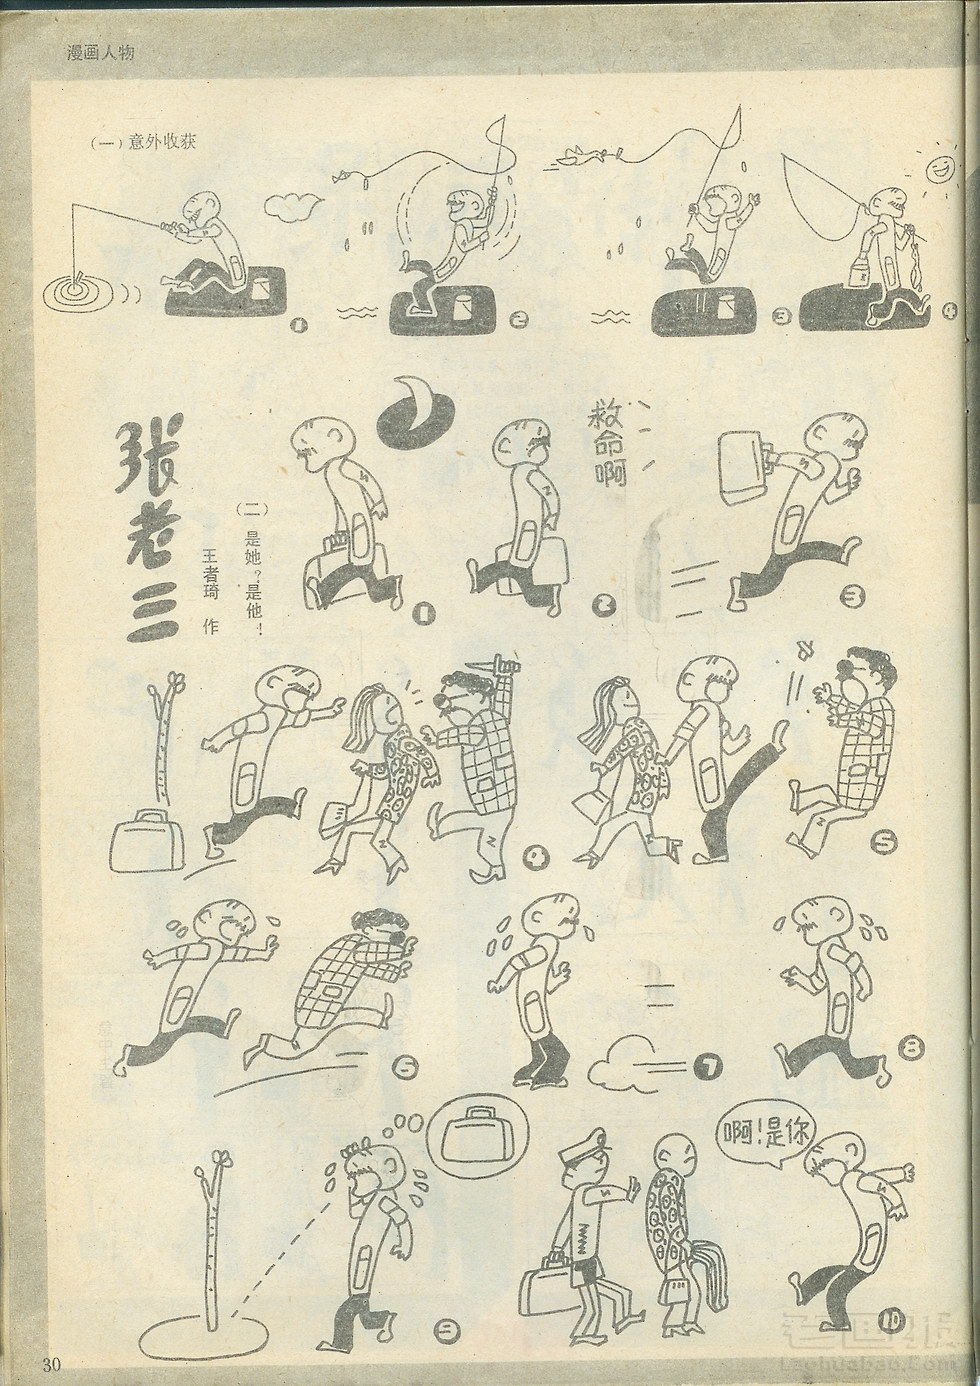 漫画人物
（一）意外收获
1
2
3
4
张老三
王者琦 作
（二）是她？是他！
救命啊
1
2
3
4
5
6
7
8
啊！是你
9
10
30
老画报
Laohuabao.Com